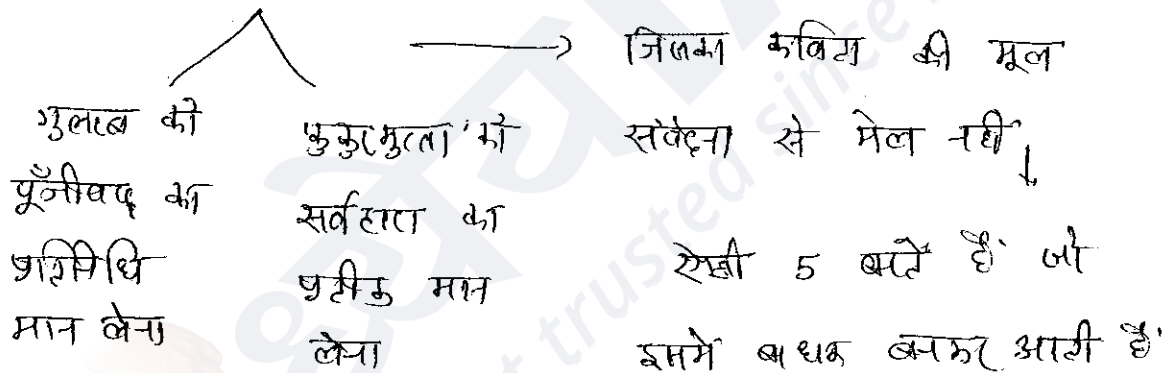 गुलाब को
पूँजीवाद का
प्रतिनिधि
मान लेना
कुकुरमुत्ता को
सर्वहारा का
प्रतीक मान
लेना
जिसका कविता की मूल
संवेदना से मेल नहीं
ऐसी 5 बातें हैं जो
इसमें बाधक बनकर आती हैं